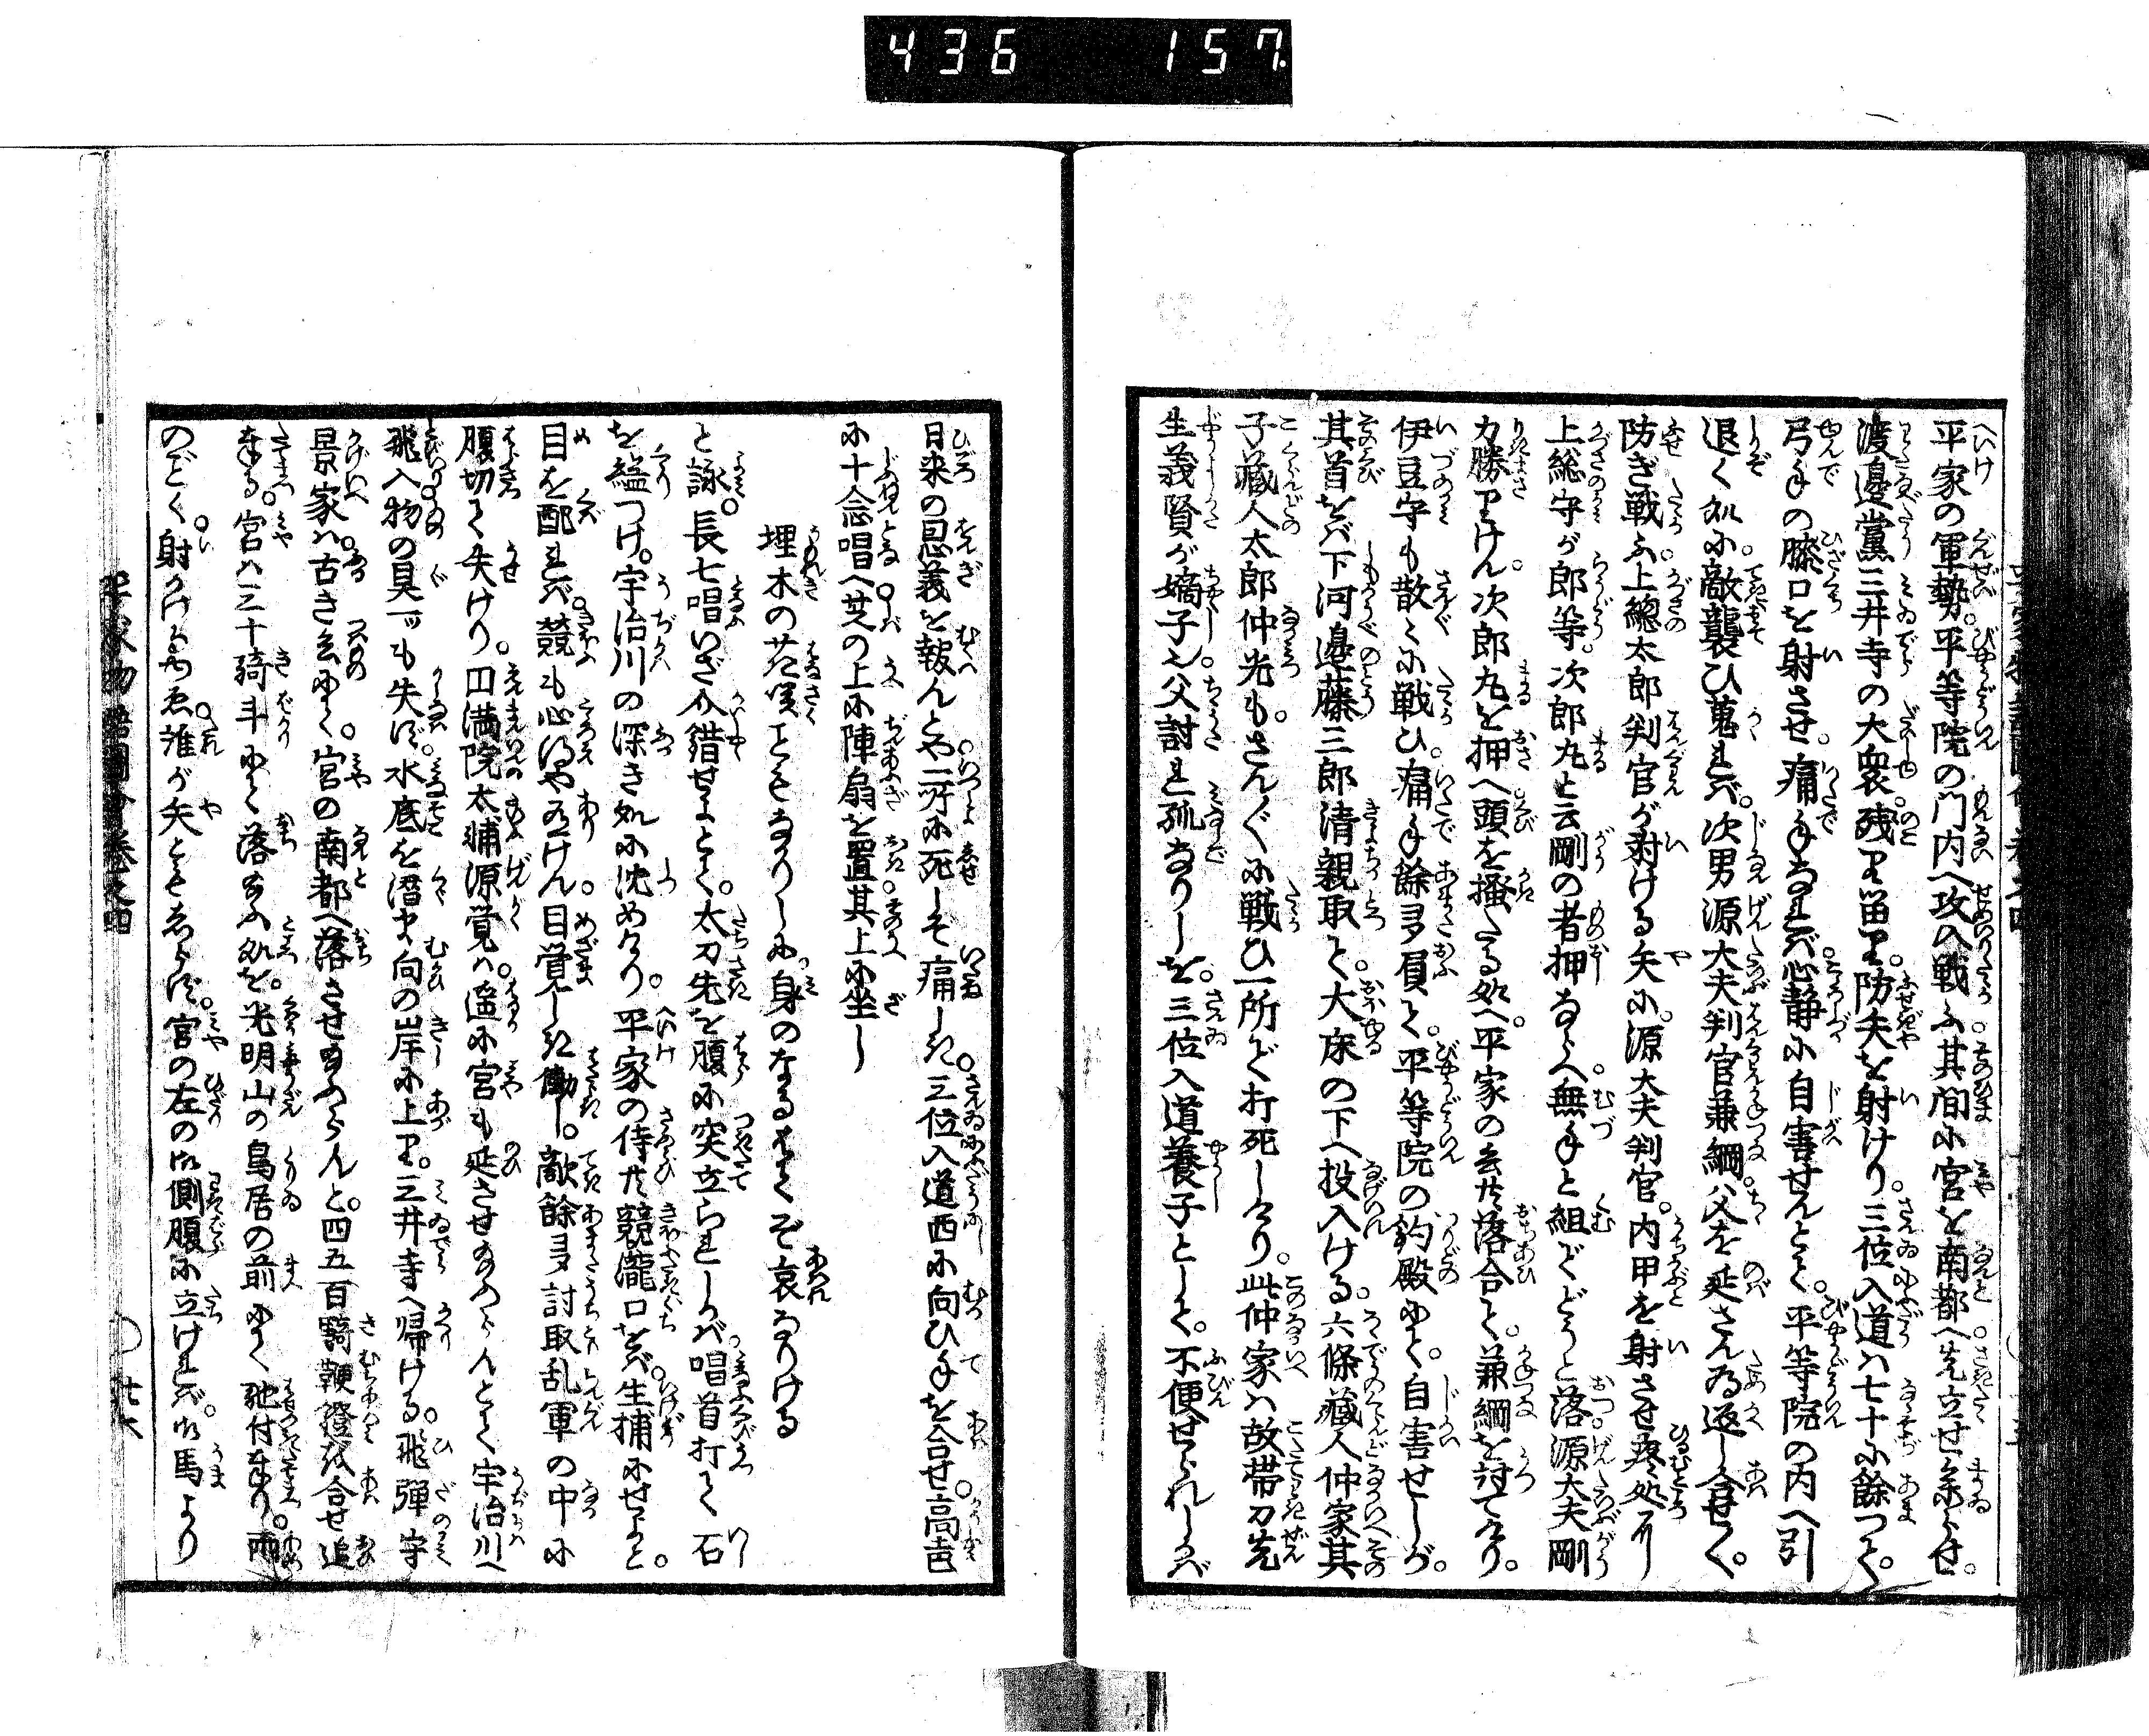 436 157.
平家の軍勢。平等院の門内へ攻入戦ふ其間に宮を南都へ先立せ参らせ。
渡邉黨三井寺の大衆残り留り。防矢を射けり。三位入道は七十に餘つて。
弓手の膝口を射させ。痛手なれば心静に自害せんとて。平等院の内へ引
退く処に。敵襲ひ蒐れば。次男源大夫判官兼綱。父を延さん為返し合せて。
防ぎ戦ふ。上總太郎判官が射ける矢に。源大夫判官。内甲を射させ疼処に
上総守が郎等。次郎丸と云剛の者押ならべ。無手と組でどうと落。源大夫剛
力勝りけん。次郎丸を押へ頭を掻たる処へ。平家の兵共落合て。兼綱を討てけり。
伊豆守も散〻に戦ひ。痛手餘多負て。平等院の釣殿にて。自害せしが。
其首をば下河邉藤三郎清親取て。大床の下へ投入ける。六條藏人仲家其
子藏人太郎仲光も。さん〴〵に戦ひ一所で打死しけり。此仲家は故帯刀先
生義賢が嫡子也。父討れ孤なりしを。三位入道養子として。不便せられしかば
日来の恩義を報んとや。一所に死しそ痛しき。三位入道西に向ひ手を合せ。高声
に十念唱へ。芝の上に陣扇を置。其上に坐し
埋木の花咲ことゝもなかりしに。身のなるはてぞ哀なりける
と詠。長七唱いざ介錯せよとて。太刀先を腹に突立られしかば。唱首打て石
を縊つけ。宇治川の深き処に沈めけり。平家の侍共競瀧口をば。生捕にせんと。
目を配れば。競も心得やありけん。目覚しき働し。敵餘多討取乱軍の中に
腹切て失けり。円満院太輔源覚は。遥に宮も延させ給ふらんとて宇治川へ
飛入。物の具一ッも失ず。水底を潜ま向の岸に上り。三井寺へ帰ける。飛彈守
景家は。古き兵にて。宮の南都へ落させ給ふらんと。四五百騎鞭鐙を合せ追
奉る。宮は三十騎斗にて落給ふ処を。光明山の鳥居の前にて馳付奉り。雨
のごく。射かけるゆゑ。誰が矢ともしらず。宮の左の御側腹に立ければ。御馬より
平家物語圖會巻之四
廿六